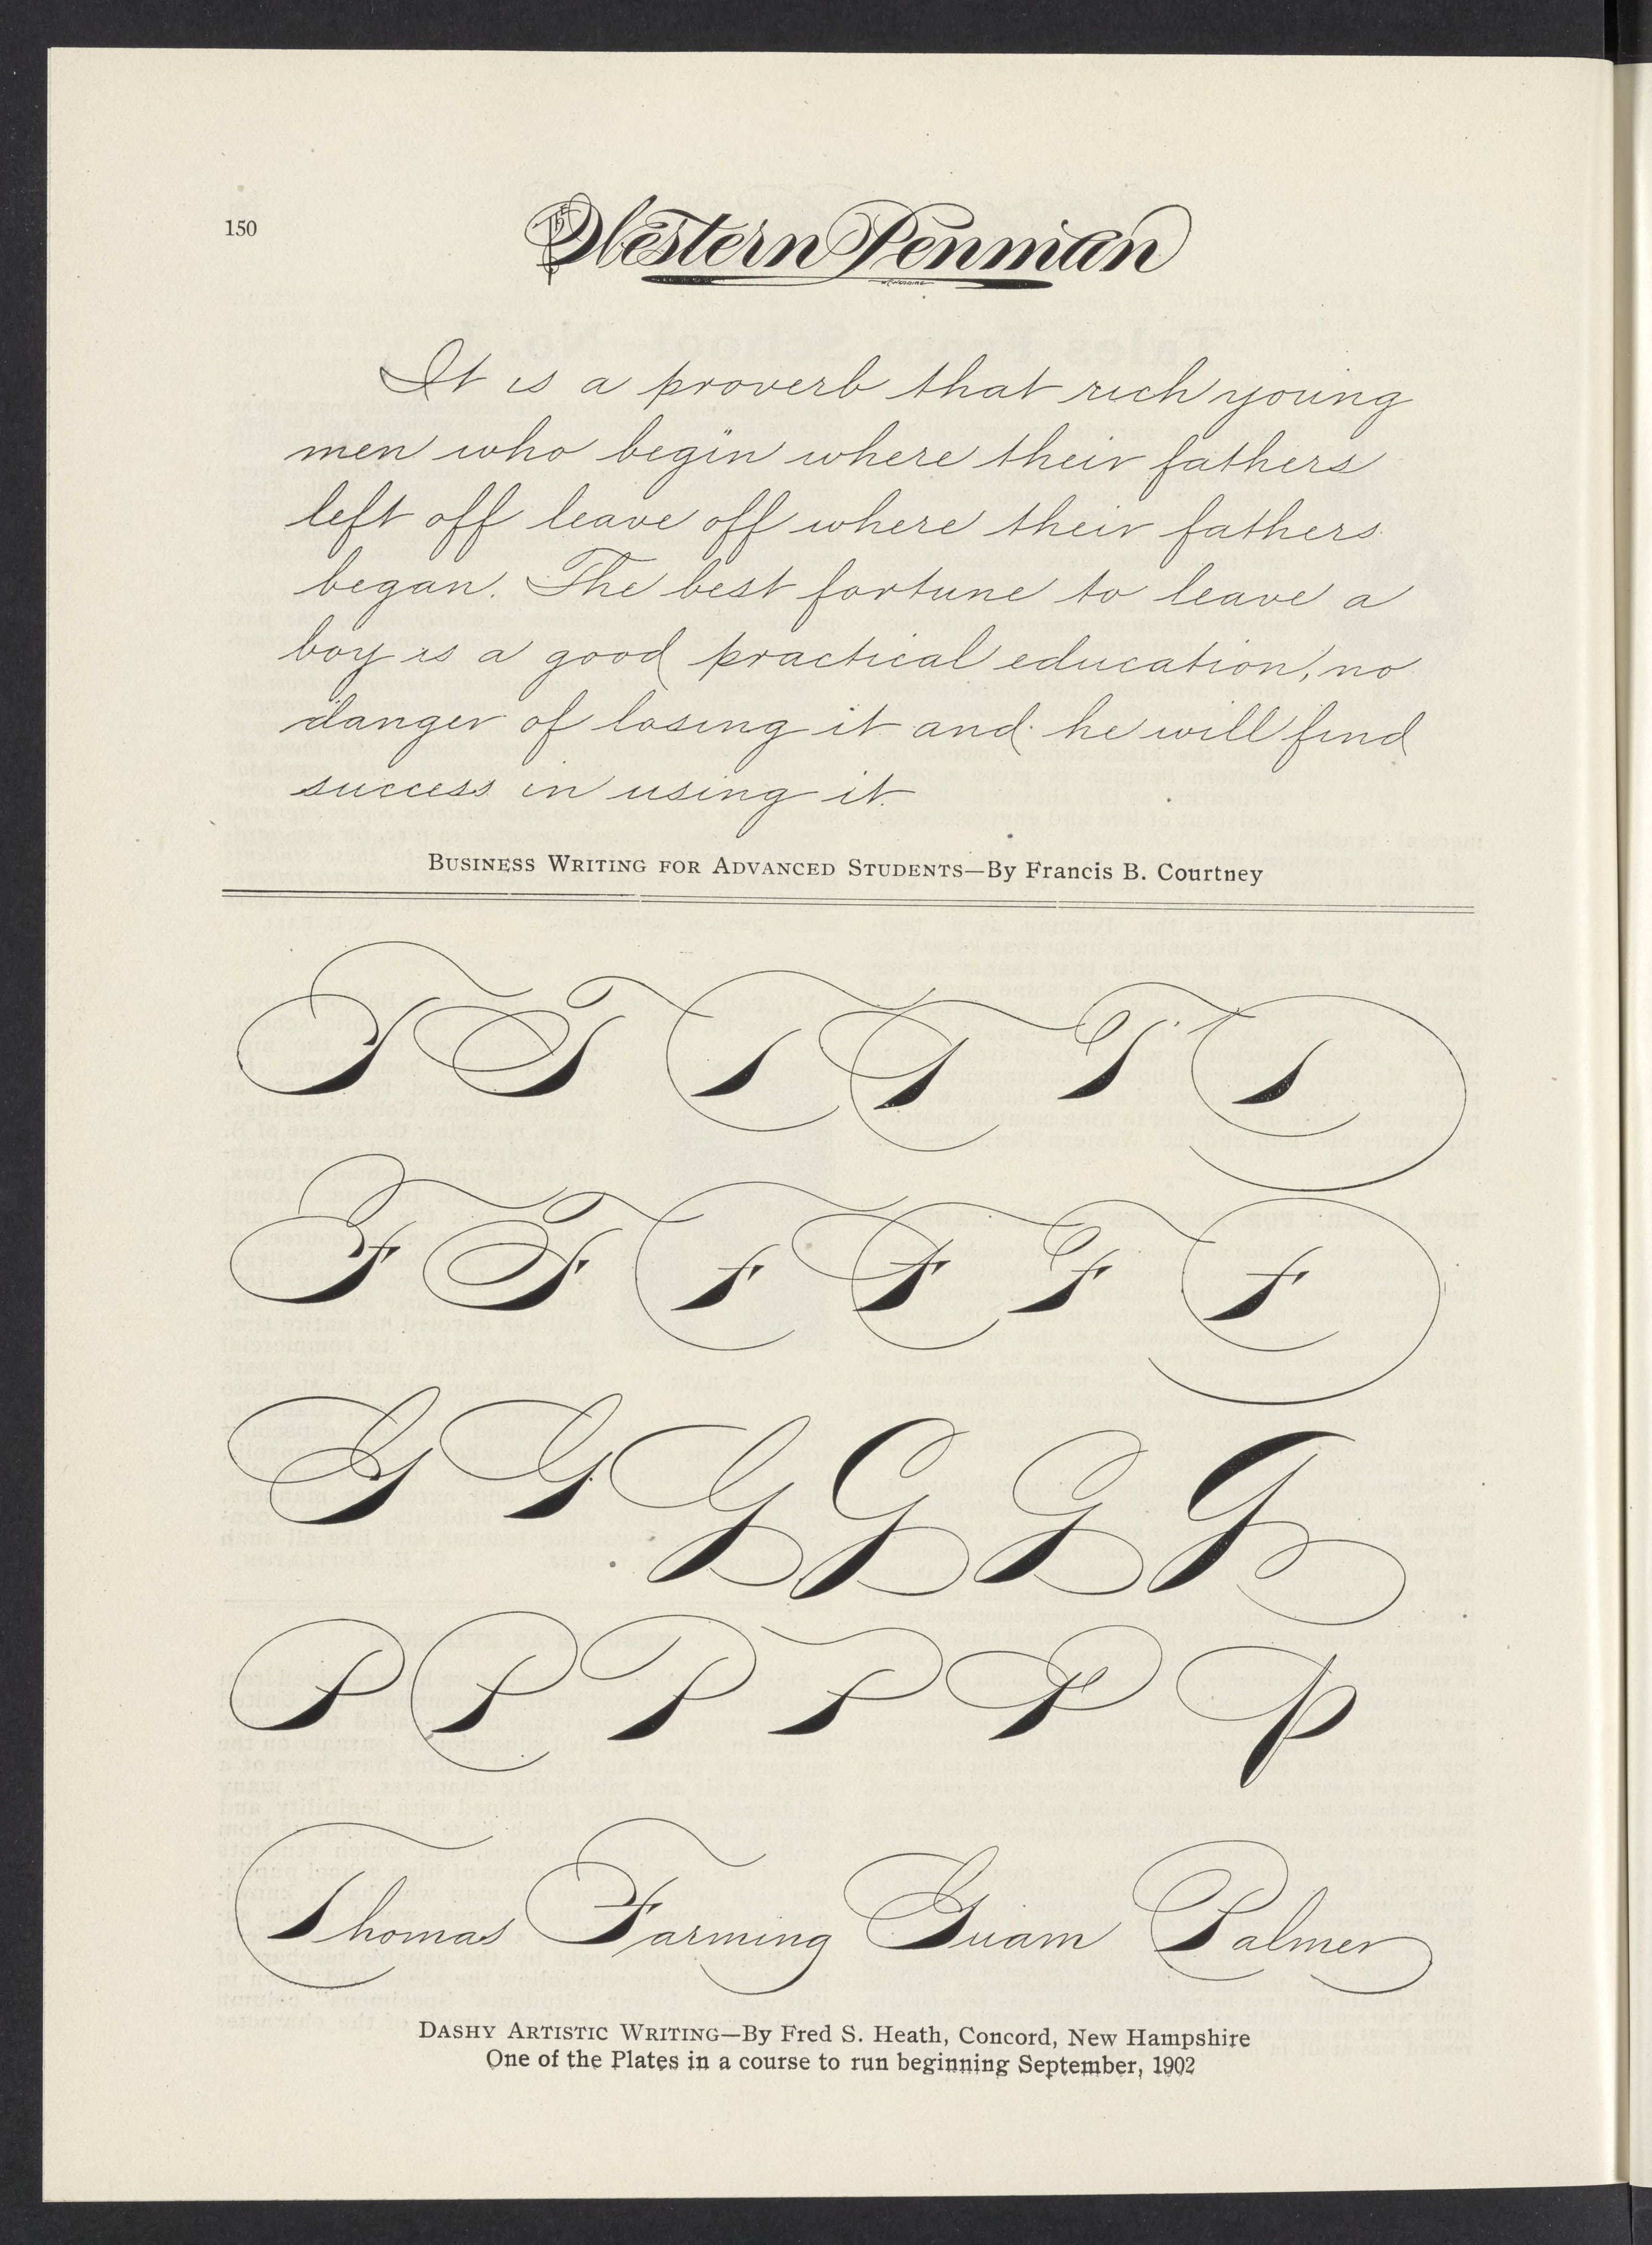 150
The Western Penman
It is a proverb that rich young
men who begin where their fathers
left off leave off where their fathers
began. The best fortune to leave a
boy is a good practical education, no
danger of losing it and he will find
success in using it.
Business Writing for Advanced Students—By Francis B. Courtney
T T T T T T
F F F F F F
G G G G G G
P P P P P P
Thomas Farming Guam Palmer
Dashy Artistic Writing—By Fred S. Heath, Concord, New Hampshire
One of the Plates in a course to run beginning September, 1902